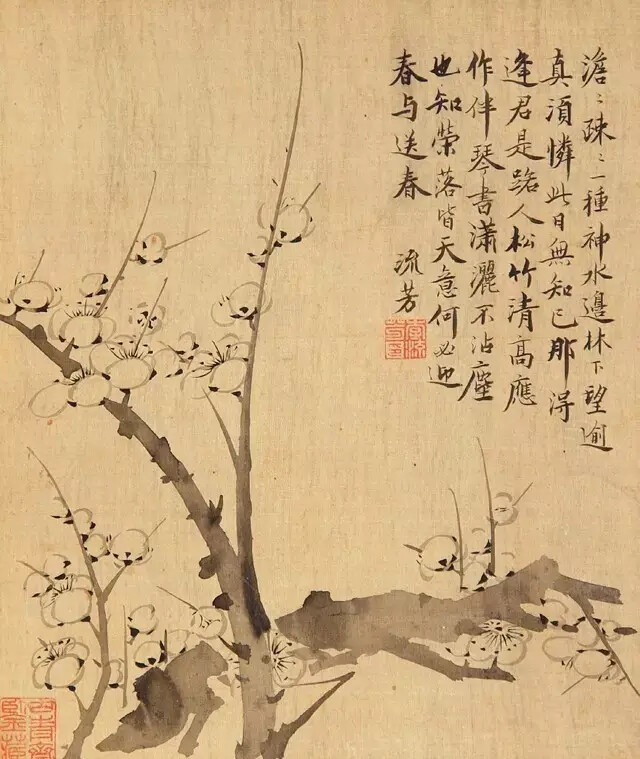 澹〻疎〻一種神水邊林下望逾
真湏憐此日無知已那得
逢君是路人松竹清高應
作伴琴書瀟灑不沾塵
也知榮落皆天意何必迎
春与送春 流芳